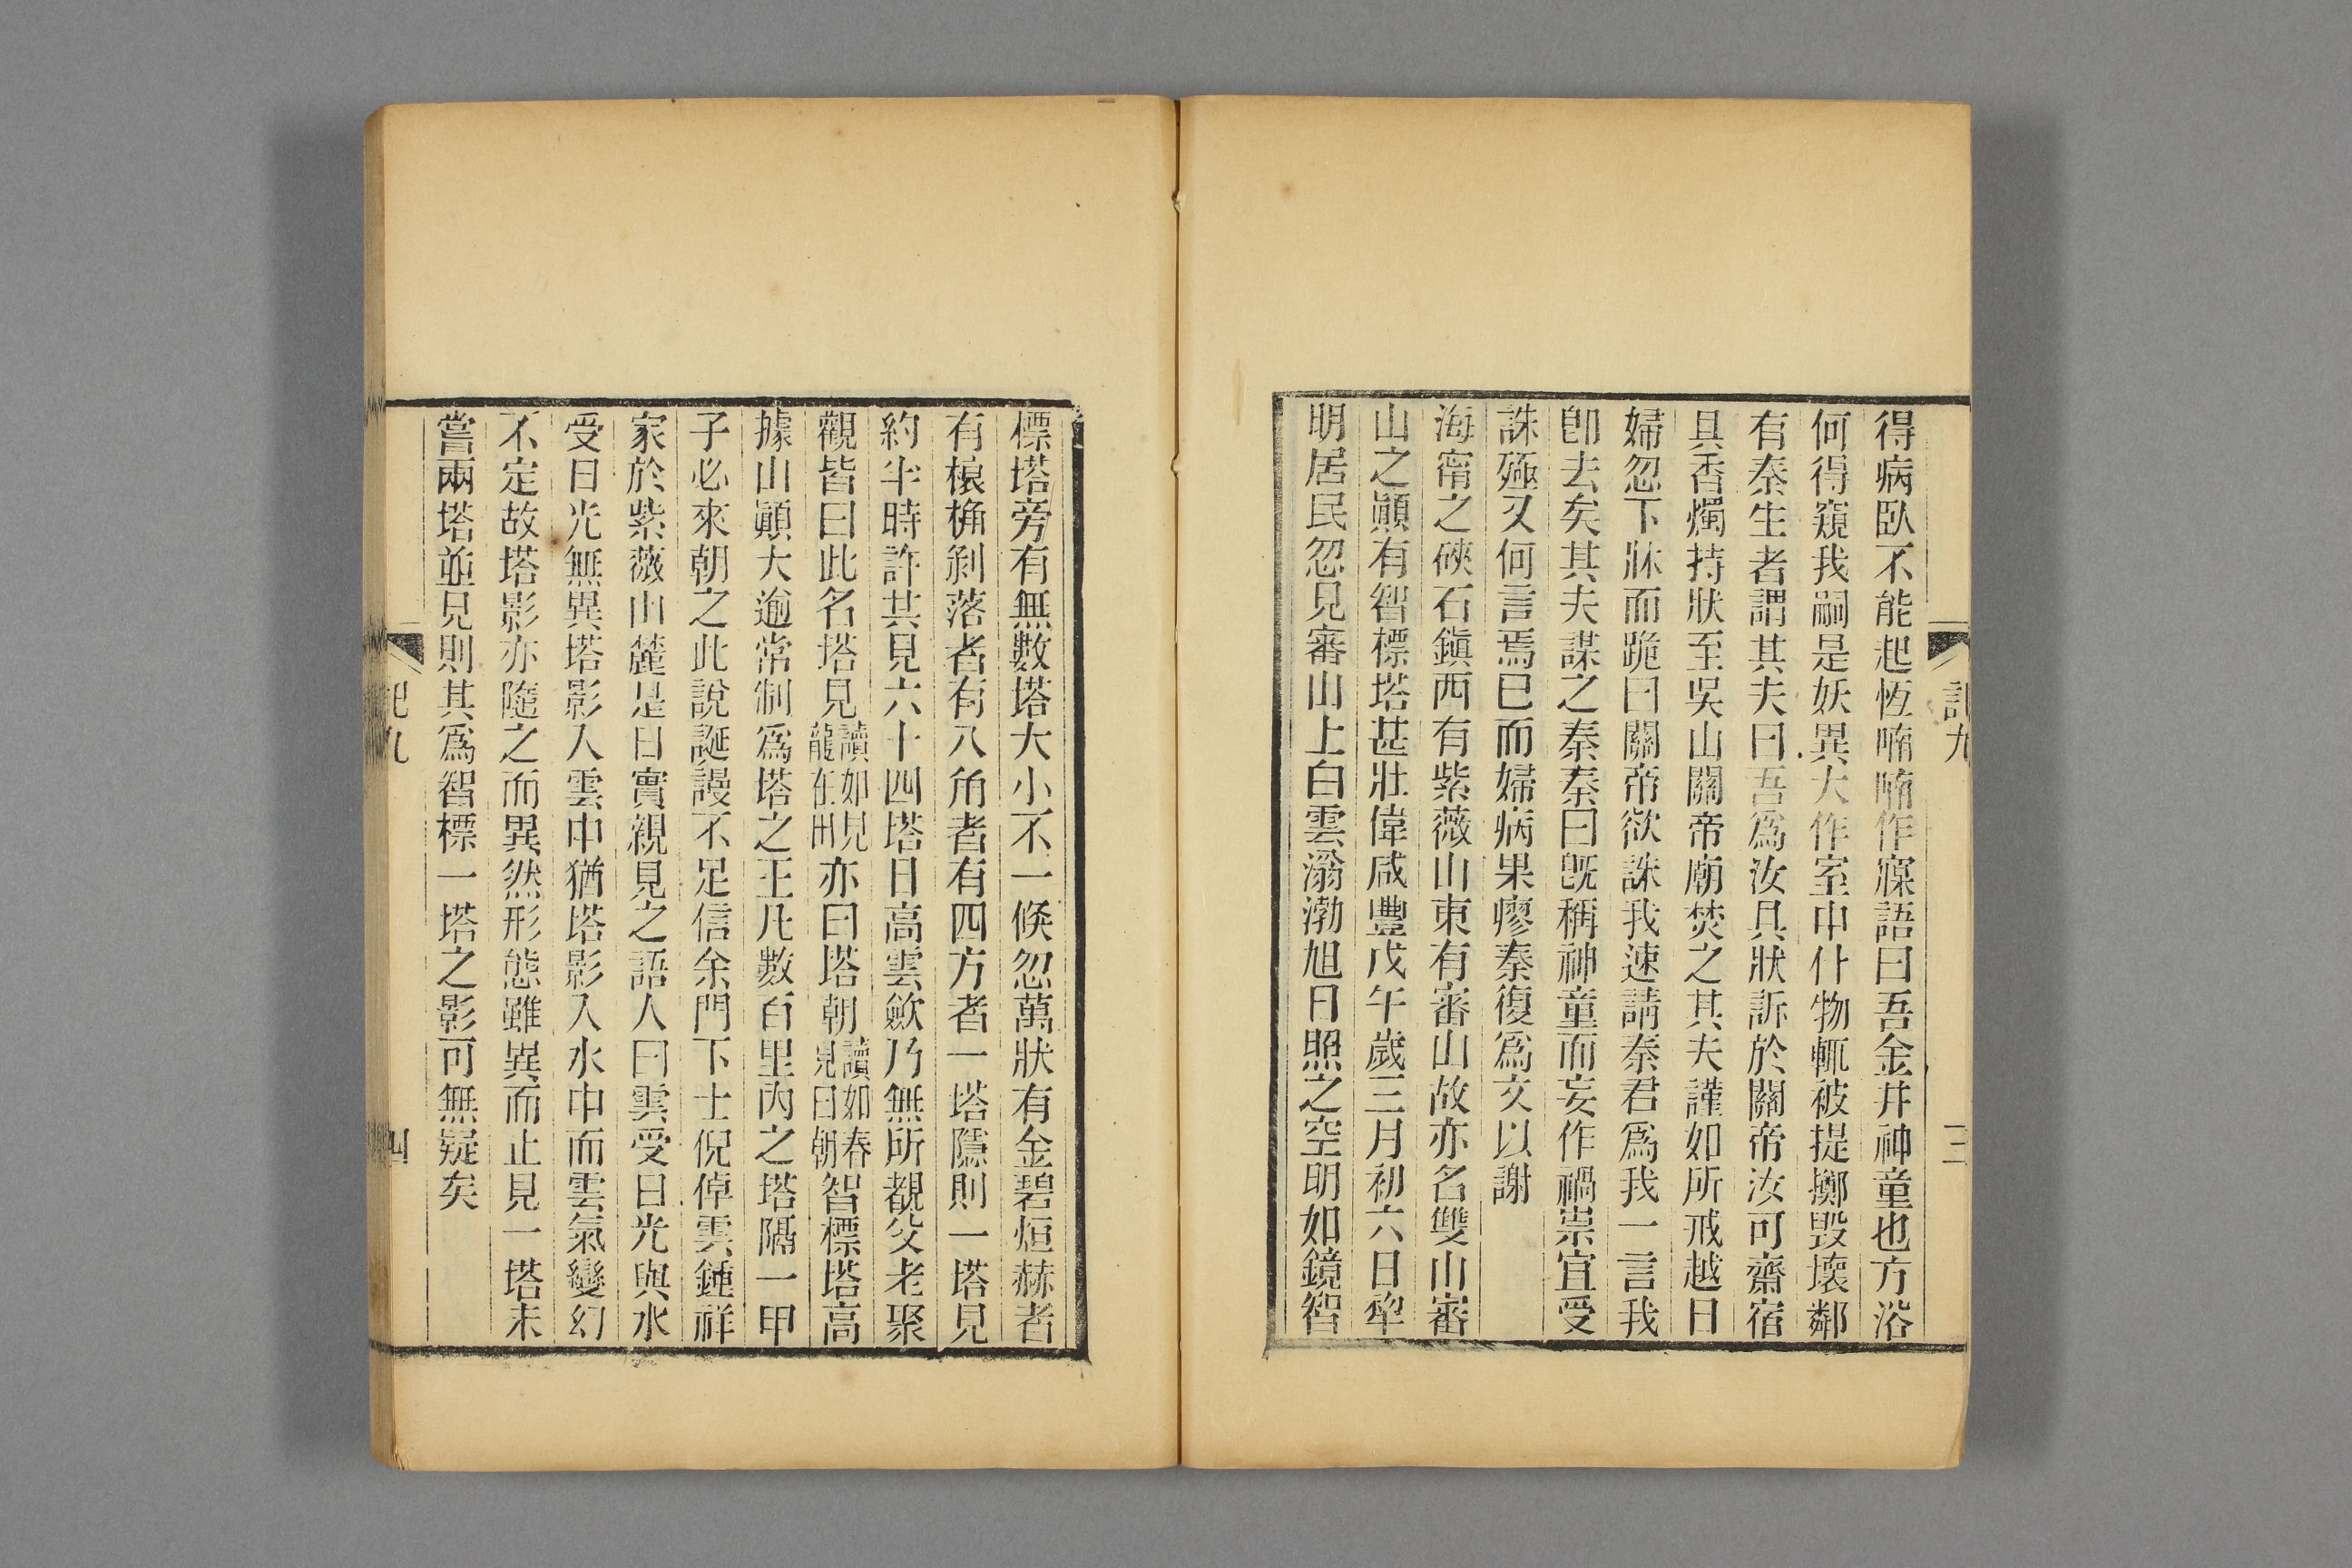 記九
三
得病臥不能起恆喃喃作寱語曰吾金井神童也方浴
何得窺我嗣是妖異大作室中什物輒被提擲毀壞鄰
有秦生者謂其夫曰吾爲汝具狀訴於關帝汝可齋宿
具香燭持狀至吳山關帝廟焚之其夫謹如所戒越日
婦忽下牀而跪曰關帝欲誅我速請秦君爲我一言我
卽去矣其夫謀之秦秦曰旣稱神童而妄作禍祟宜受
誅殛又何言焉已而婦病果瘳秦復爲文以謝
海甯之硤石鎭西有紫薇山東有審山故亦名雙山審
山之顚有智標塔甚壯偉咸豐戊午歲三月初六日犂
明居民忽見審山上白雲滃渤旭日照之空明如鏡智
標塔旁有無數塔大小不一倏忽萬狀有金碧烜赫者
有榱桷剝落者有八角者有四方者一塔隱則一塔見
約半時許共見六十四塔日高雲歛乃無所覩父老聚
觀皆曰此名塔見讀如見龍在田亦曰塔朝讀如春見曰朝智標塔高
據山顚大逾常制爲塔之王凡數百里內之塔隔一甲
子必來朝之此說誕謾不足信余門下士倪倬雲鍾祥
家於紫薇山麓是日實親見之語人曰雲受日光與水
受日光無異塔影入雲中猶塔影入水中而雲氣變幻
不定故塔影亦隨之而異然形態雖異而止見一塔未
嘗兩塔並見則其爲智標一塔之影可無疑矣
記九
四